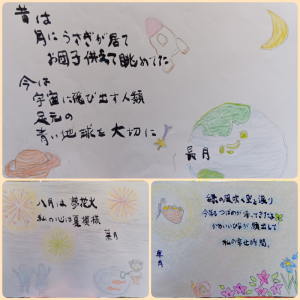 昔は
月にうさぎが居て
お団子供えて眺めてた
今は
宇宙に飛び出す人類
足元の
青い地球を大切に
長月
八月は夢花火
私の心は夏模様
葉月
緑の風吹く空を渡り
今年もつばめが帰ってきたよ
かわいいひなが顔出して
私の幸せ時間。